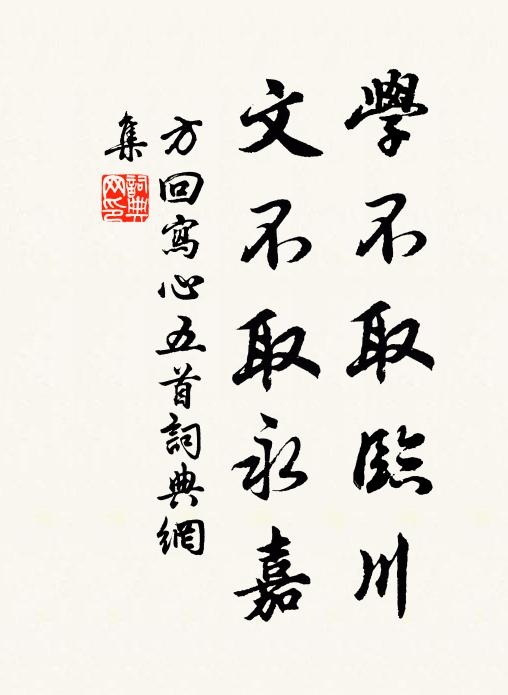 學不取臨川
文不取永嘉
方回寫心五首詞典網
集
詞典
网印